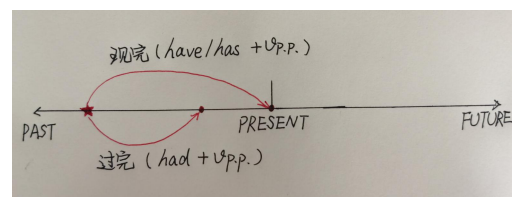 现完(have/has +Vp.p.)
PAST
PRESENT
FUTURE
过完(had +Vp.p.)